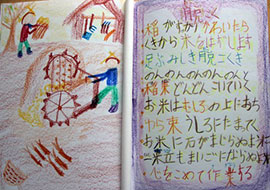 脱こく
稲がすっかりかわいたら
くきから米をはずします
足ぶみしき脱こくき
のんのんのんのんのんと
稲束どんどんこいでいく
お米はむしろの上におち
わら束うしろにたまってく
お米に石がまじらぬよう
一粒もまいごにならぬよう
心をこめて作業する